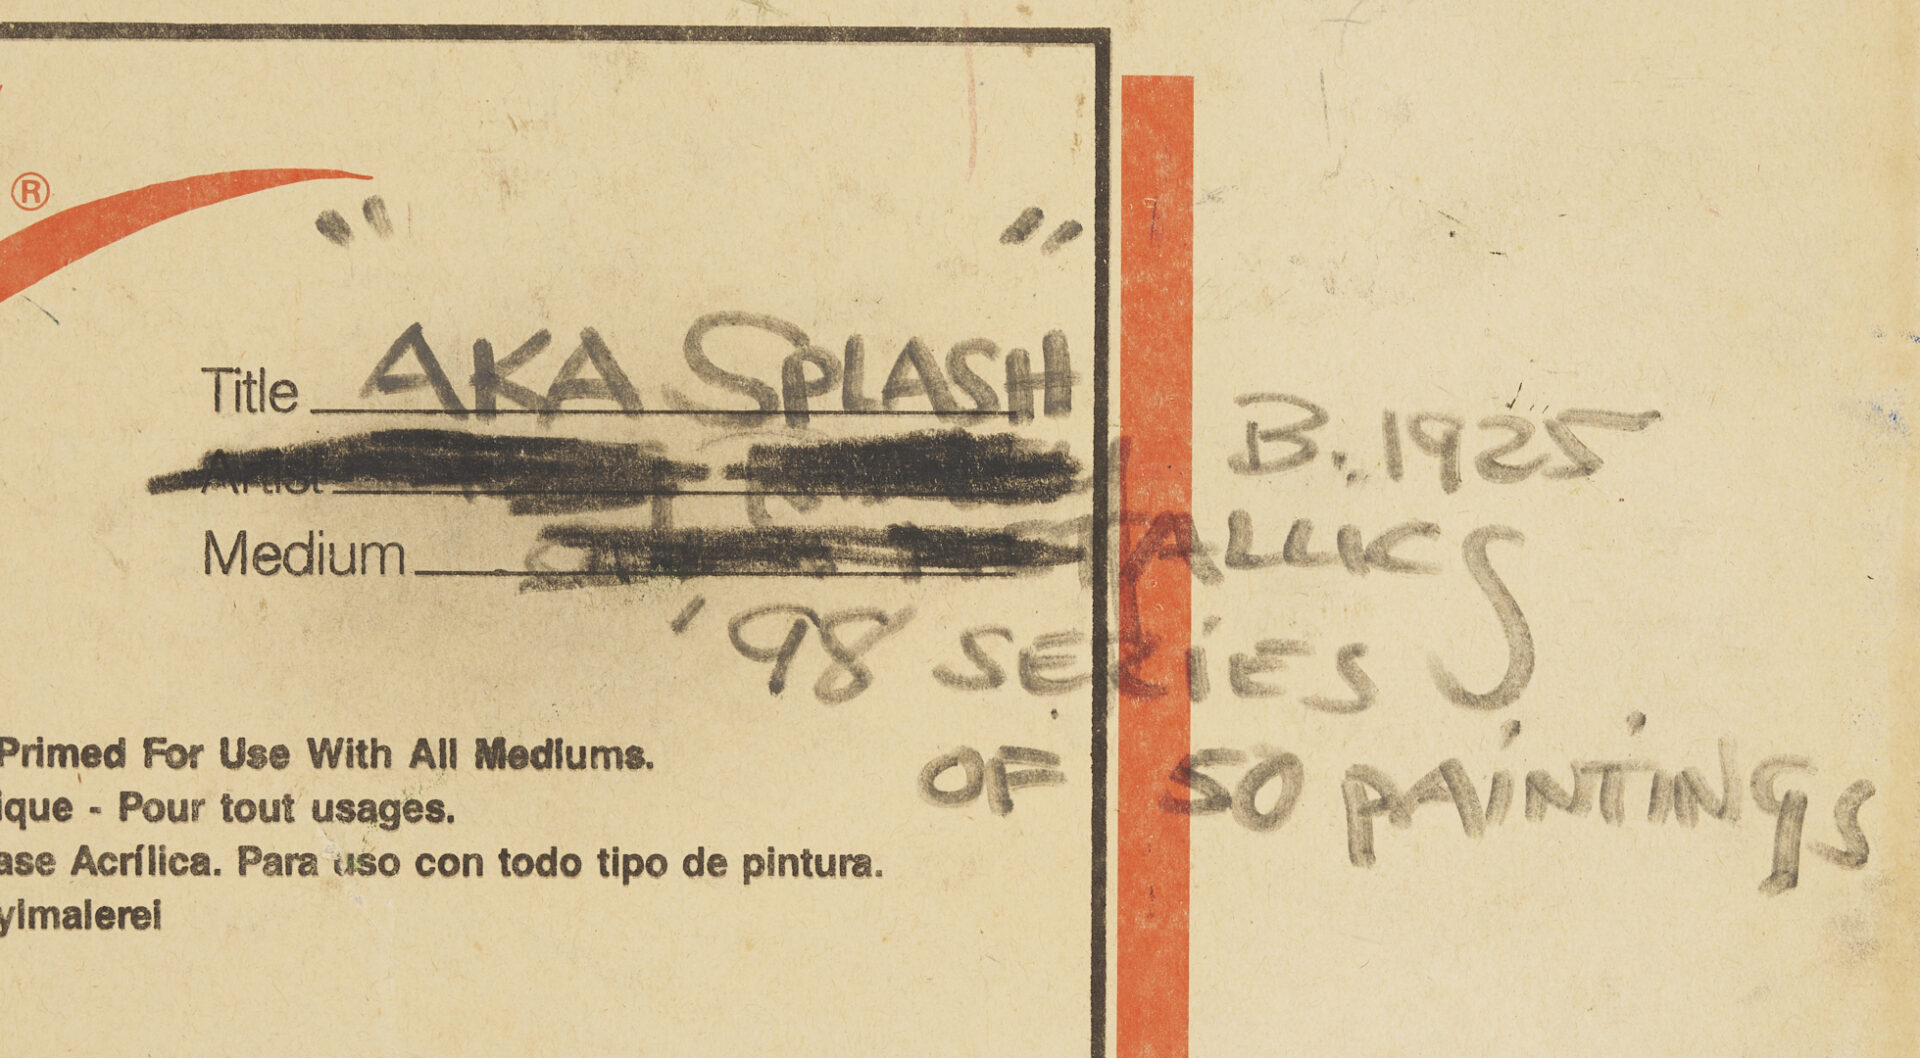 ®
" "
Title AKA SPLASH
Artist B. 1925
Medium METALLICS
'98 SERiES
OF 50 PAiNTiNGS
Primed For Use With All Mediums.
ique - Pour tout usages.
ase Acrílica. Para uso con todo tipo de pintura.
ylmalerei